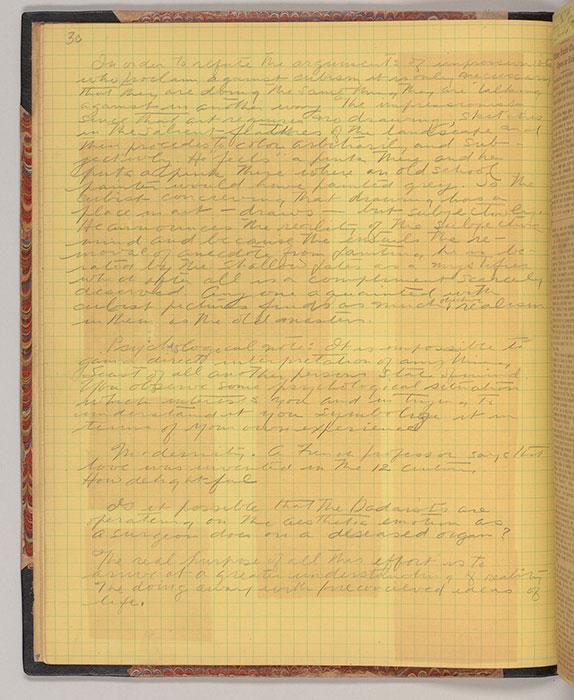 30
In order to refute the arguments of impressionists
who proclaim against cubism it is only necessary
that they are doing the same thing they are talking
against in another way. The impressionists
since that art requires no drawing, sketches
in the salient features of the landscape and
then procedes to color arbitrarily and sub-
jectively. He feels a purple thing and he
puts a purple there where an old school
painter would have painted grey. So the
cubist conceiving that drawing has a
place in art — draws — but subjectively.
He announces the reality of the subjective
mind and because the entails the re-
moval of anecdote from painting, he is be-
rated by the shallow pates as a mystifier
which after all is a compliment scarcely
deserved. Any one acquainted with
cubist pictures finds as much objective realism
in them as the old masters.
Psychological note: It is impossible to
gain a direct interpretation of any thing,
least of all another persons state of mind.
You observe some psychological situation
which interests you and in trying to
understand it you symbolize it in
terms of your own experience
Modernity. A French professor says that
love was invented in the 12 century.
How delightful
Is it possible that the Dadaists are
operating on the aesthetic emotion as
a surgeon does on a diseased organ?
The real purpose of all this effort is to
arrive at a greater understanding of reality
The doing away with preconceived ideas of
life.